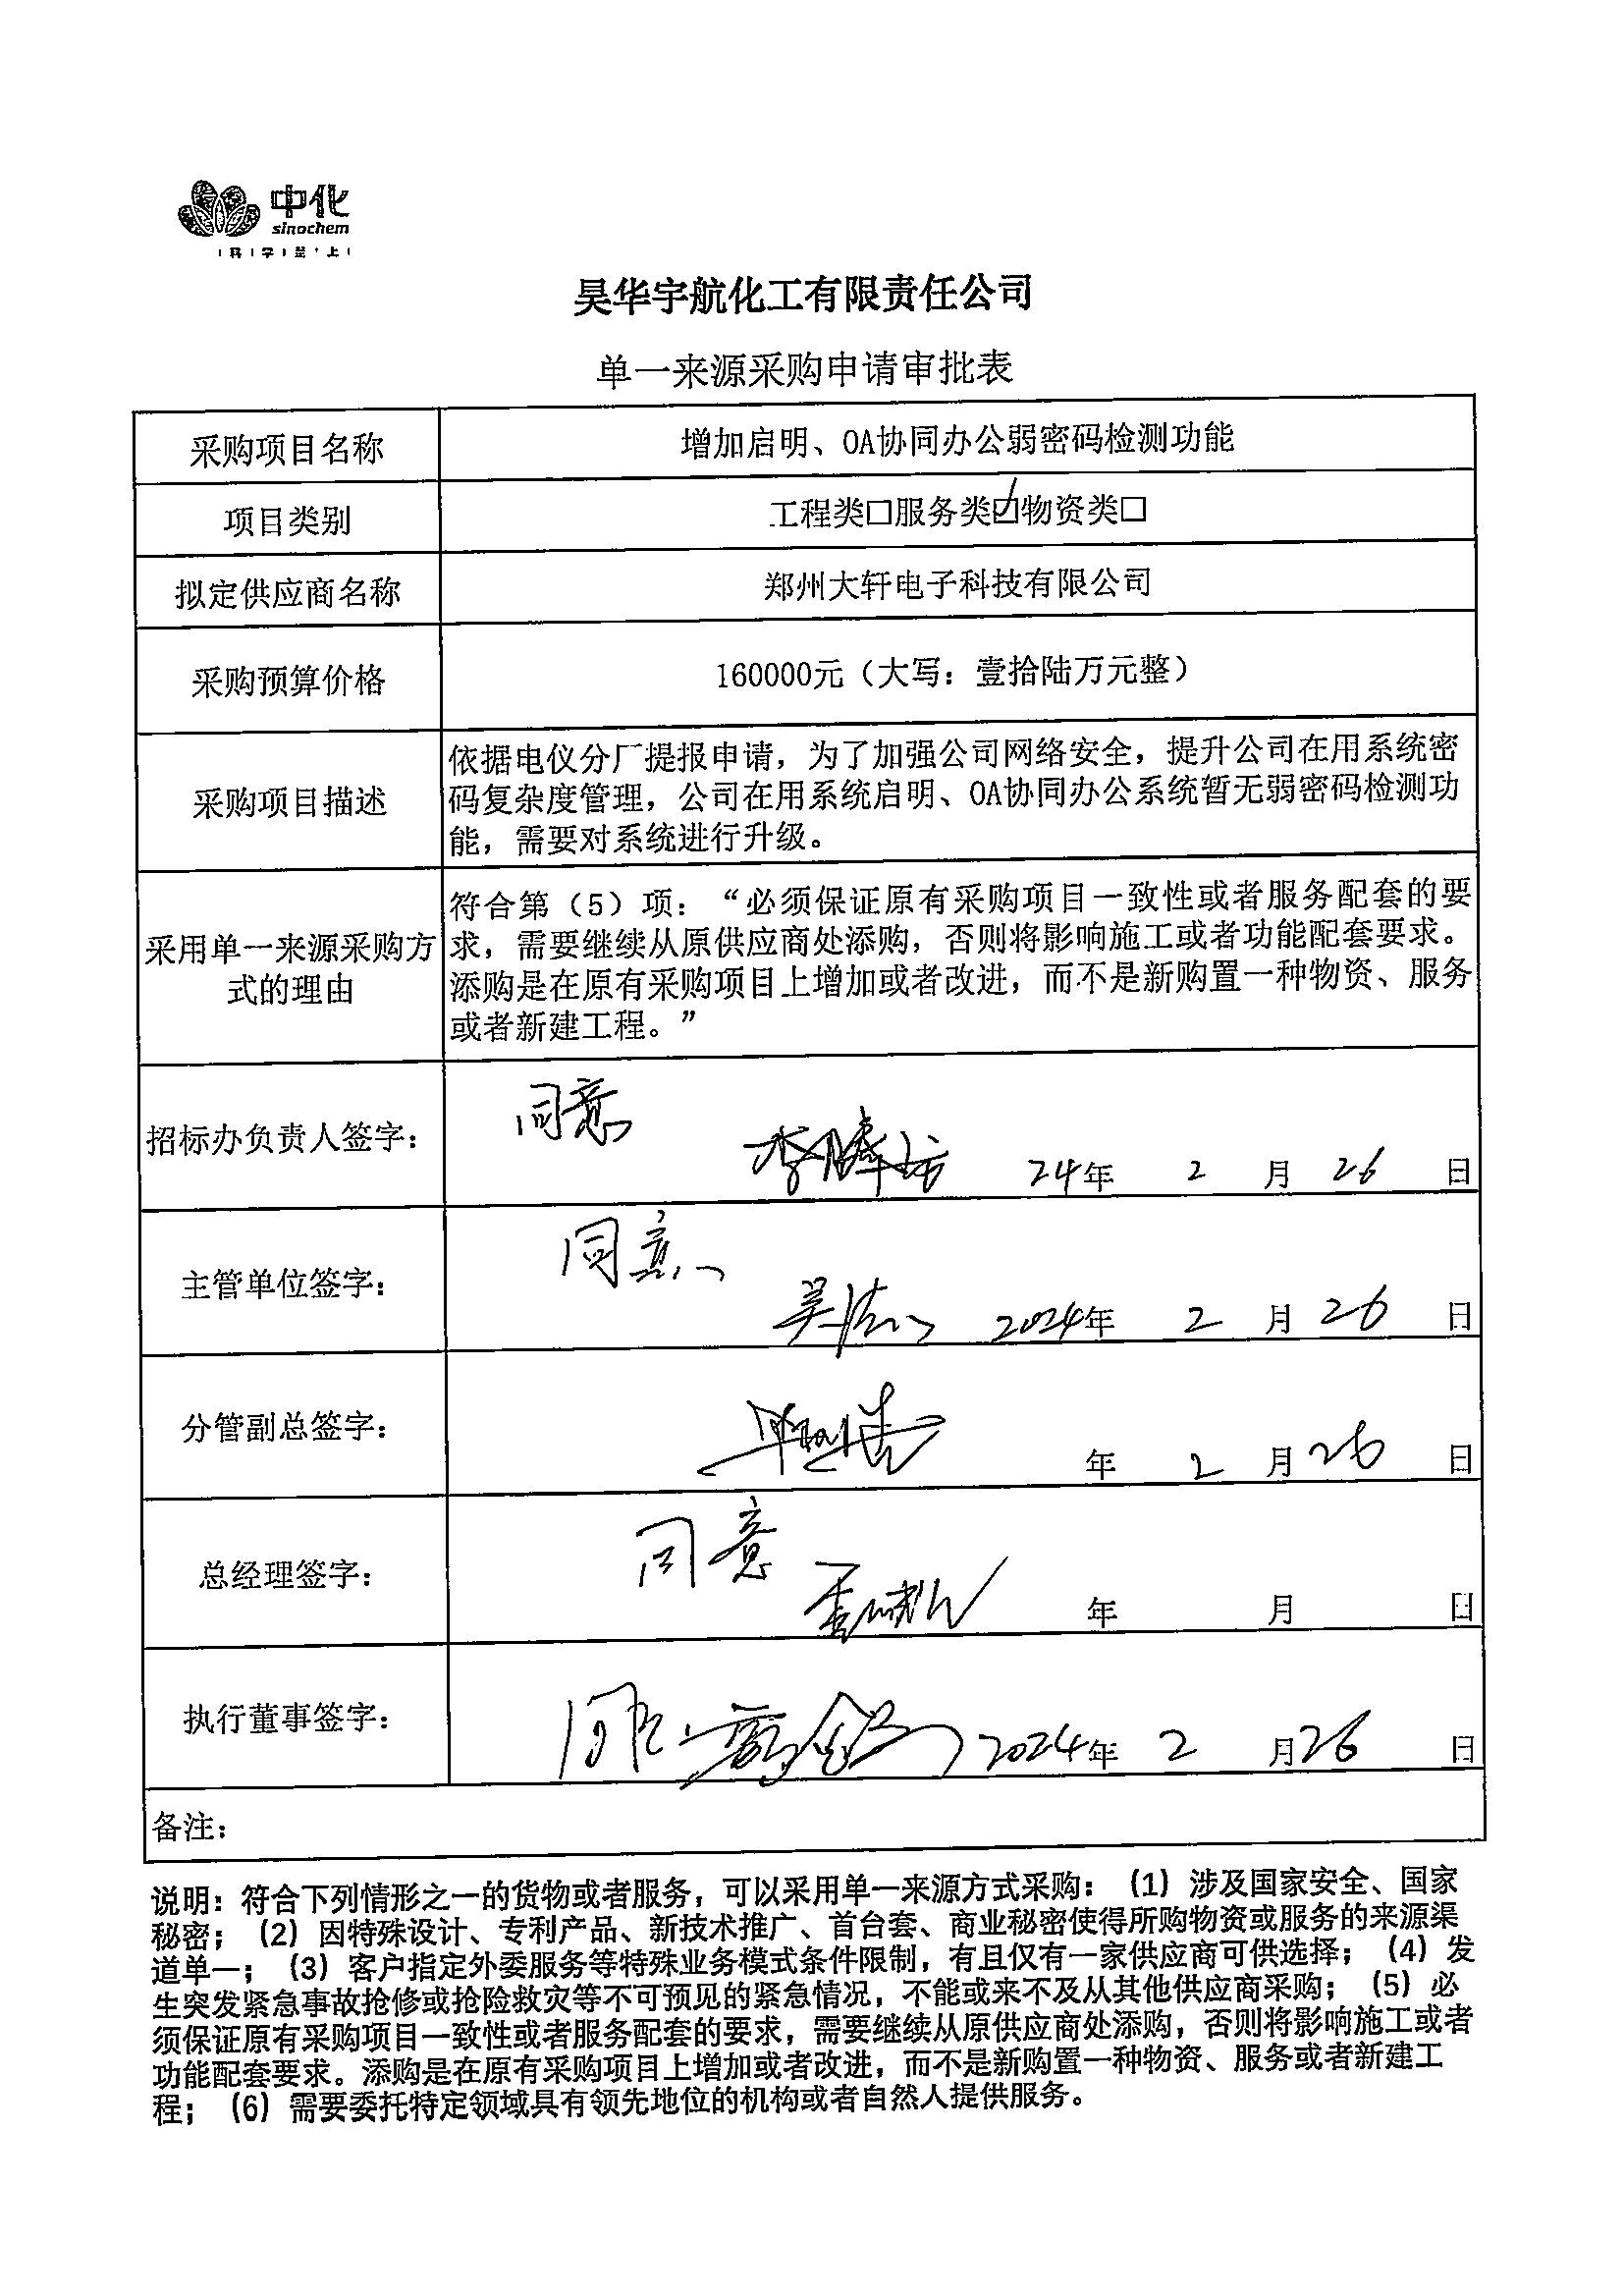 中化
sinochem
科学至上
昊华宇航化工有限责任公司
单一来源采购申请审批表
采购项目名称
增加启明、OA协同办公弱密码检测功能
项目类别
工程类□服务类☑物资类□
拟定供应商名称
郑州大轩电子科技有限公司
采购预算价格
160000元（大写：壹拾陆万元整）
采购项目描述
依据电仪分厂提报申请，为了加强公司网络安全，提升公司在用系统密
码复杂度管理，公司在用系统启明、OA协同办公系统暂无弱密码检测功
能，需要对系统进行升级。
采用单一来源采购方
式的理由
符合第（5）项：“必须保证原有采购项目一致性或者服务配套的要
求，需要继续从原供应商处添购，否则将影响施工或者功能配套要求。
添购是在原有采购项目上增加或者改进，而不是新购置一种物资、服务
或者新建工程。”
招标办负责人签字：
同意
24年 2 月 26 日
主管单位签字：
同意
2024年 2 月 26 日
分管副总签字：
年 2 月 26 日
总经理签字：
同意
年 月 日
执行董事签字：
2024年 2 月 26 日
备注：
说明：符合下列情形之一的货物或者服务，可以采用单一来源方式采购：（1）涉及国家安全、国家
秘密；（2）因特殊设计、专利产品、新技术推广、首台套、商业秘密使得所购物资或服务的来源渠
道单一；（3）客户指定外委服务等特殊业务模式条件限制，有且仅有一家供应商可供选择；（4）发
生突发紧急事故抢修或抢险救灾等不可预见的紧急情况，不能或来不及从其他供应商采购；（5）必
须保证原有采购项目一致性或者服务配套的要求，需要继续从原供应商处添购，否则将影响施工或者
功能配套要求。添购是在原有采购项目上增加或者改进，而不是新购置一种物资、服务或者新建工
程；（6）需要委托特定领域具有领先地位的机构或者自然人提供服务。